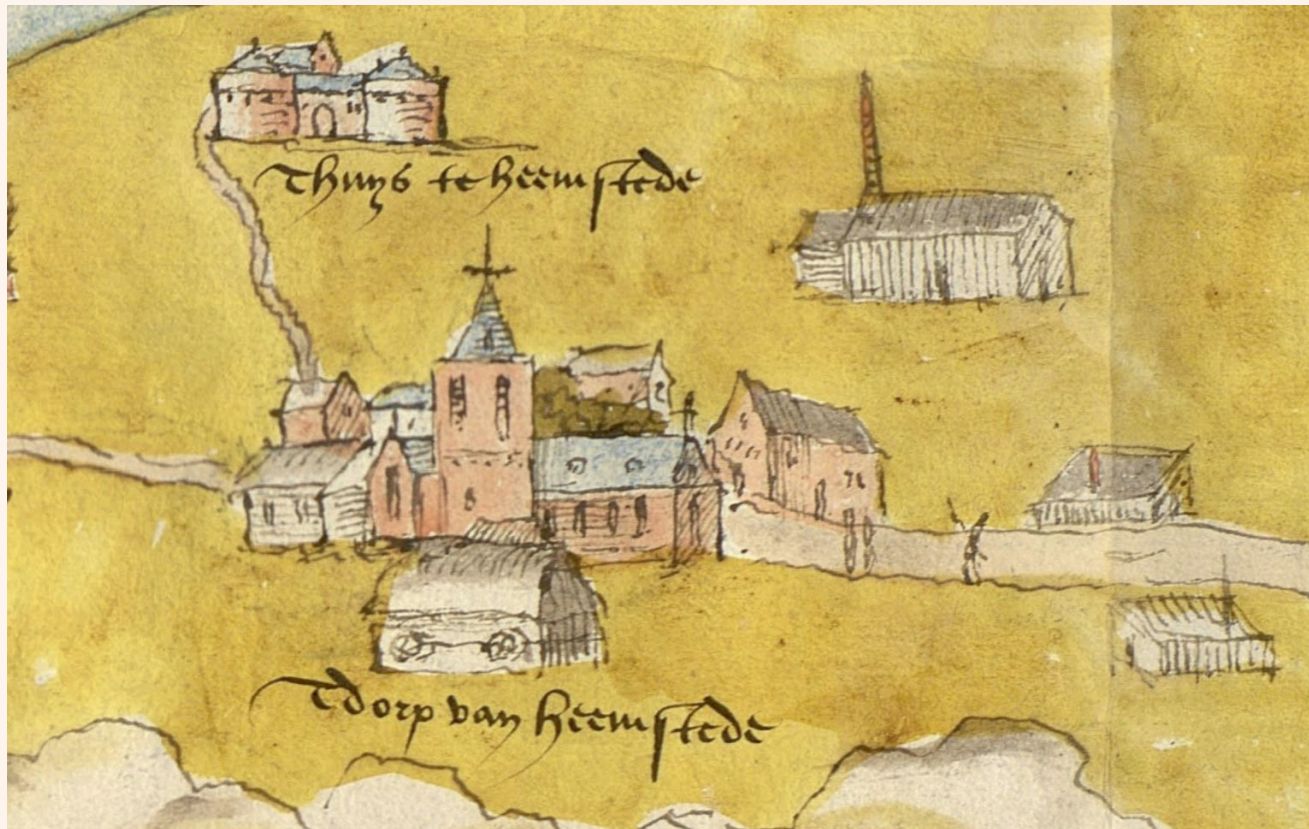 Thuys te heemstede
Tdorp van heemstede